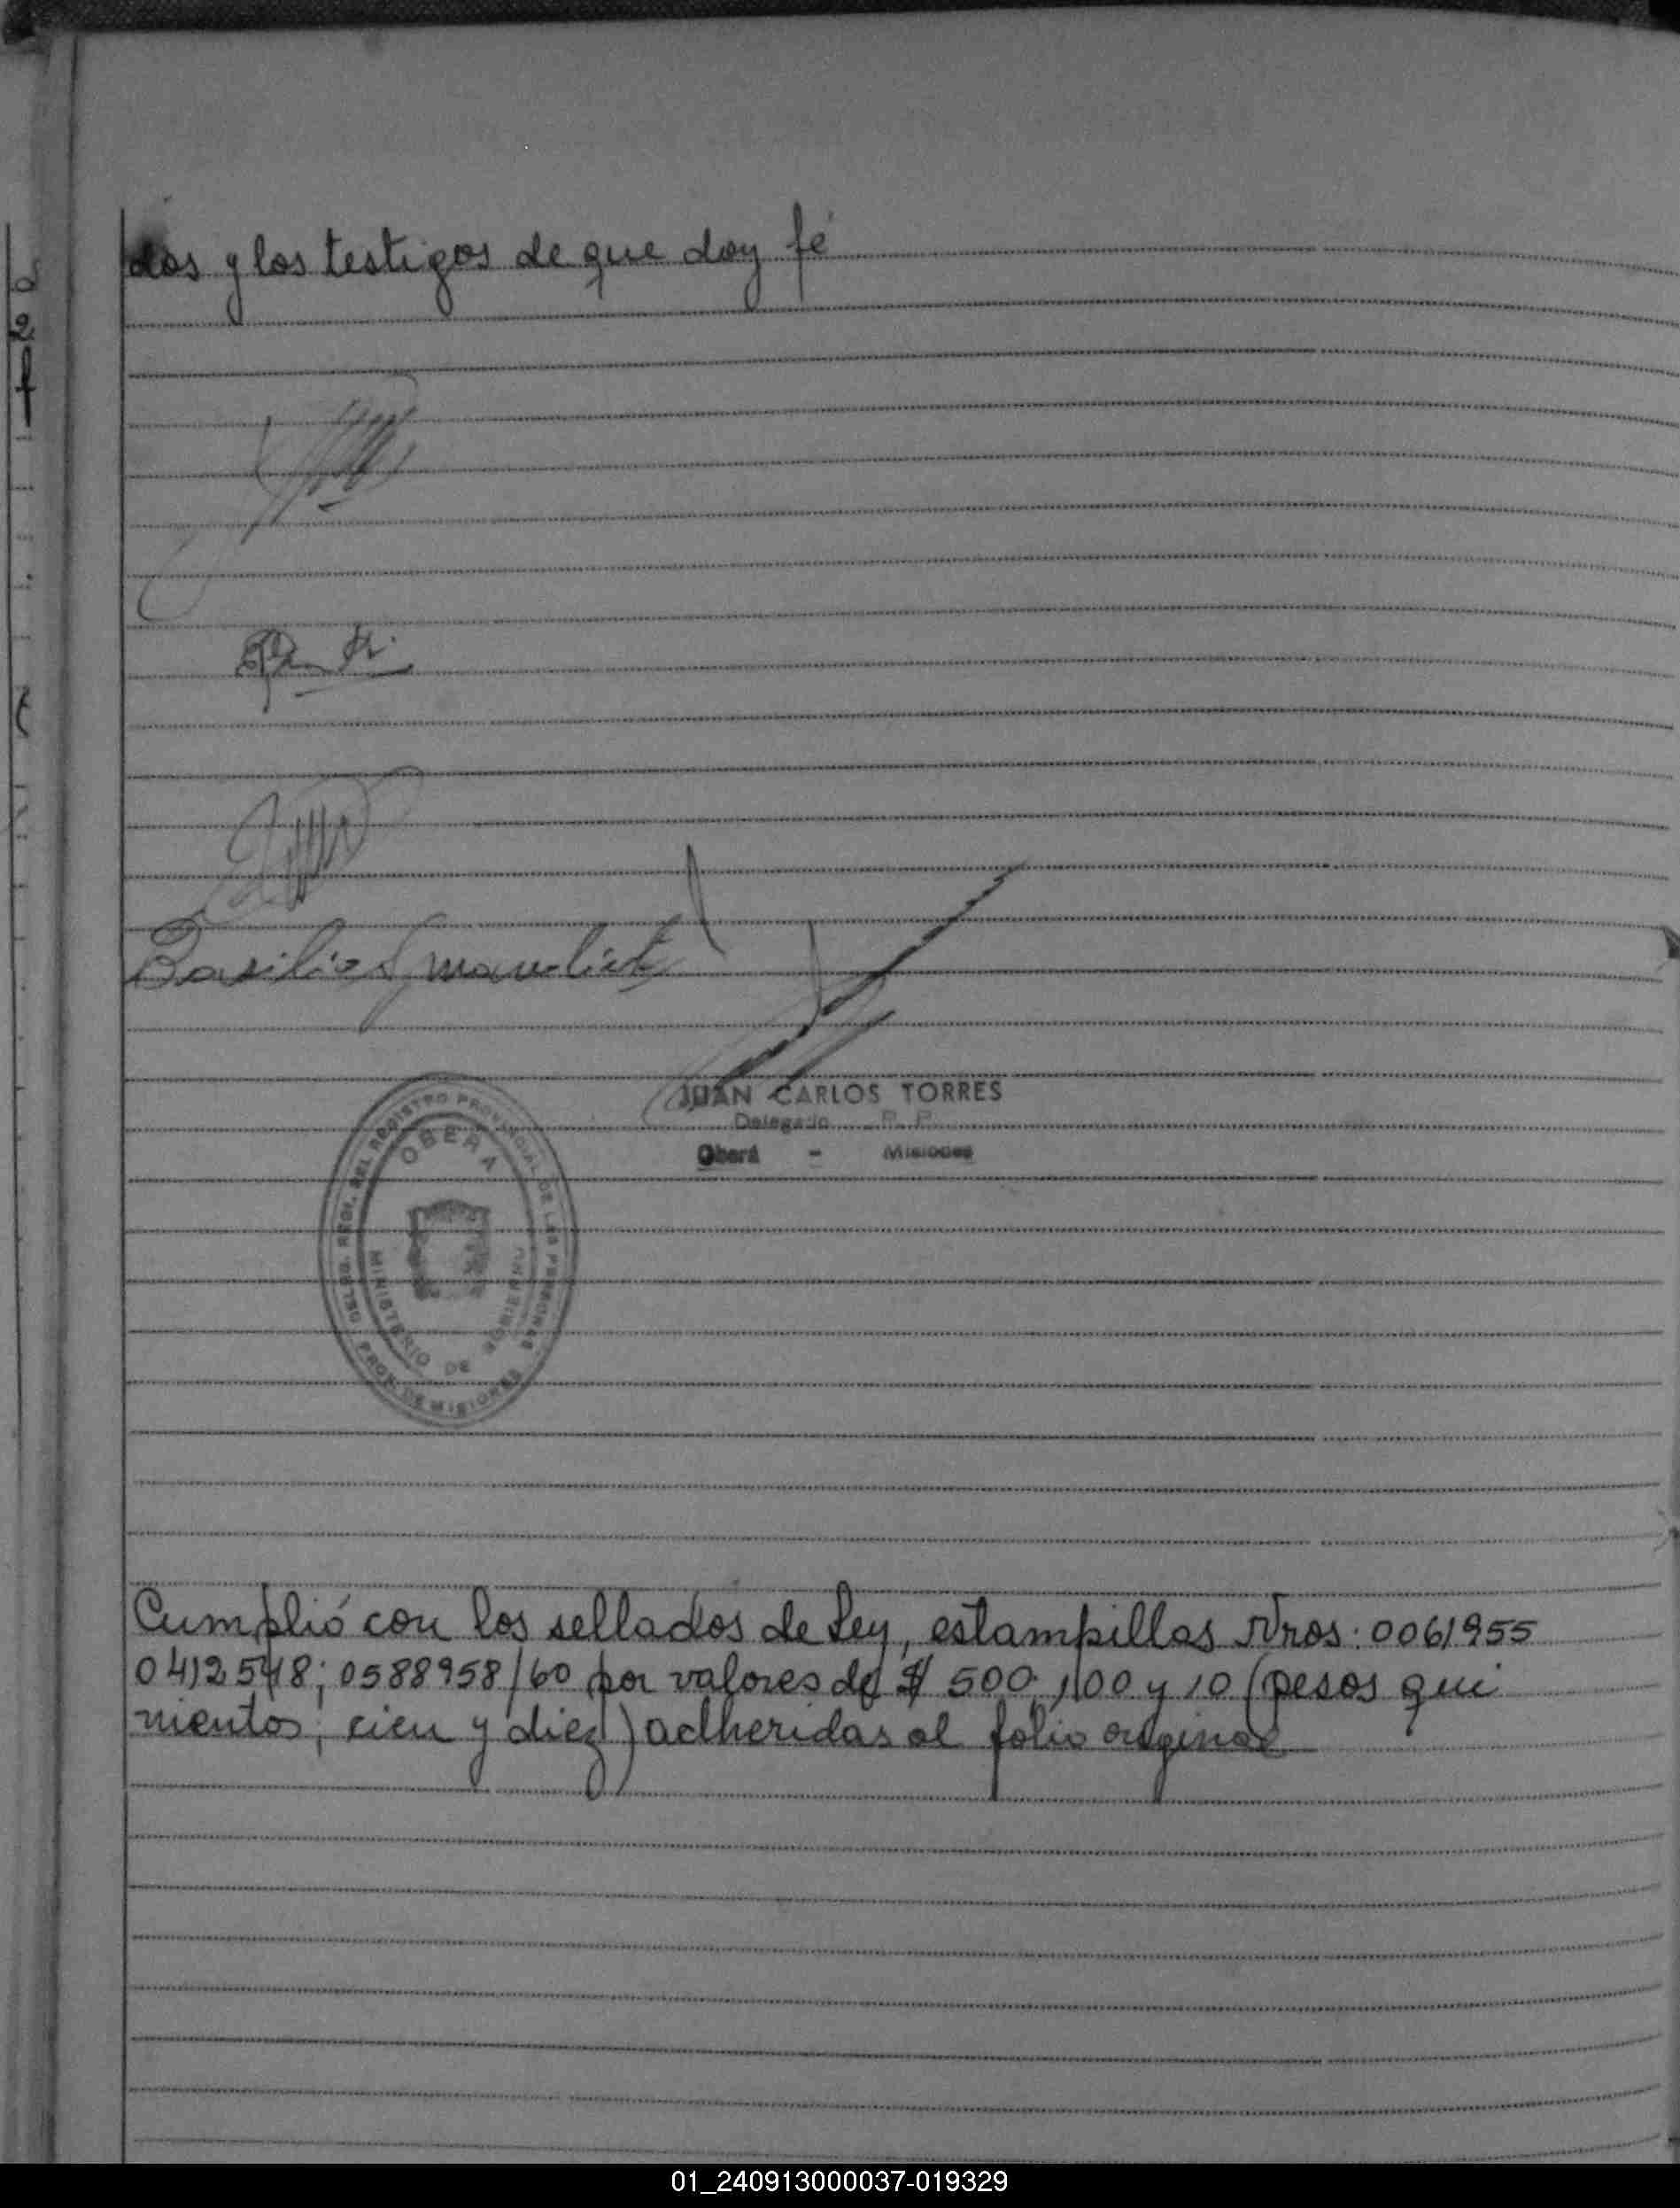 dos y los testigos de que doy fé
Basilio
JUAN CARLOS TORRES
Delegado R. P.
Oberá - Misiones
DELEG. REGI. DEL REGISTRO PROVINCIAL DE LAS PERSONAS
OBERA
MINISTERIO DE GOBIERNO
PROV. DE MISIONES
Cumplió con los sellados de Ley, estampillas Nros: 0061955
0412548; 0588958/60 por valores de $ 500, 100 y 10 (pesos qui
nientos, cien y diez) adheridas al folio original
01_240913000037-019329